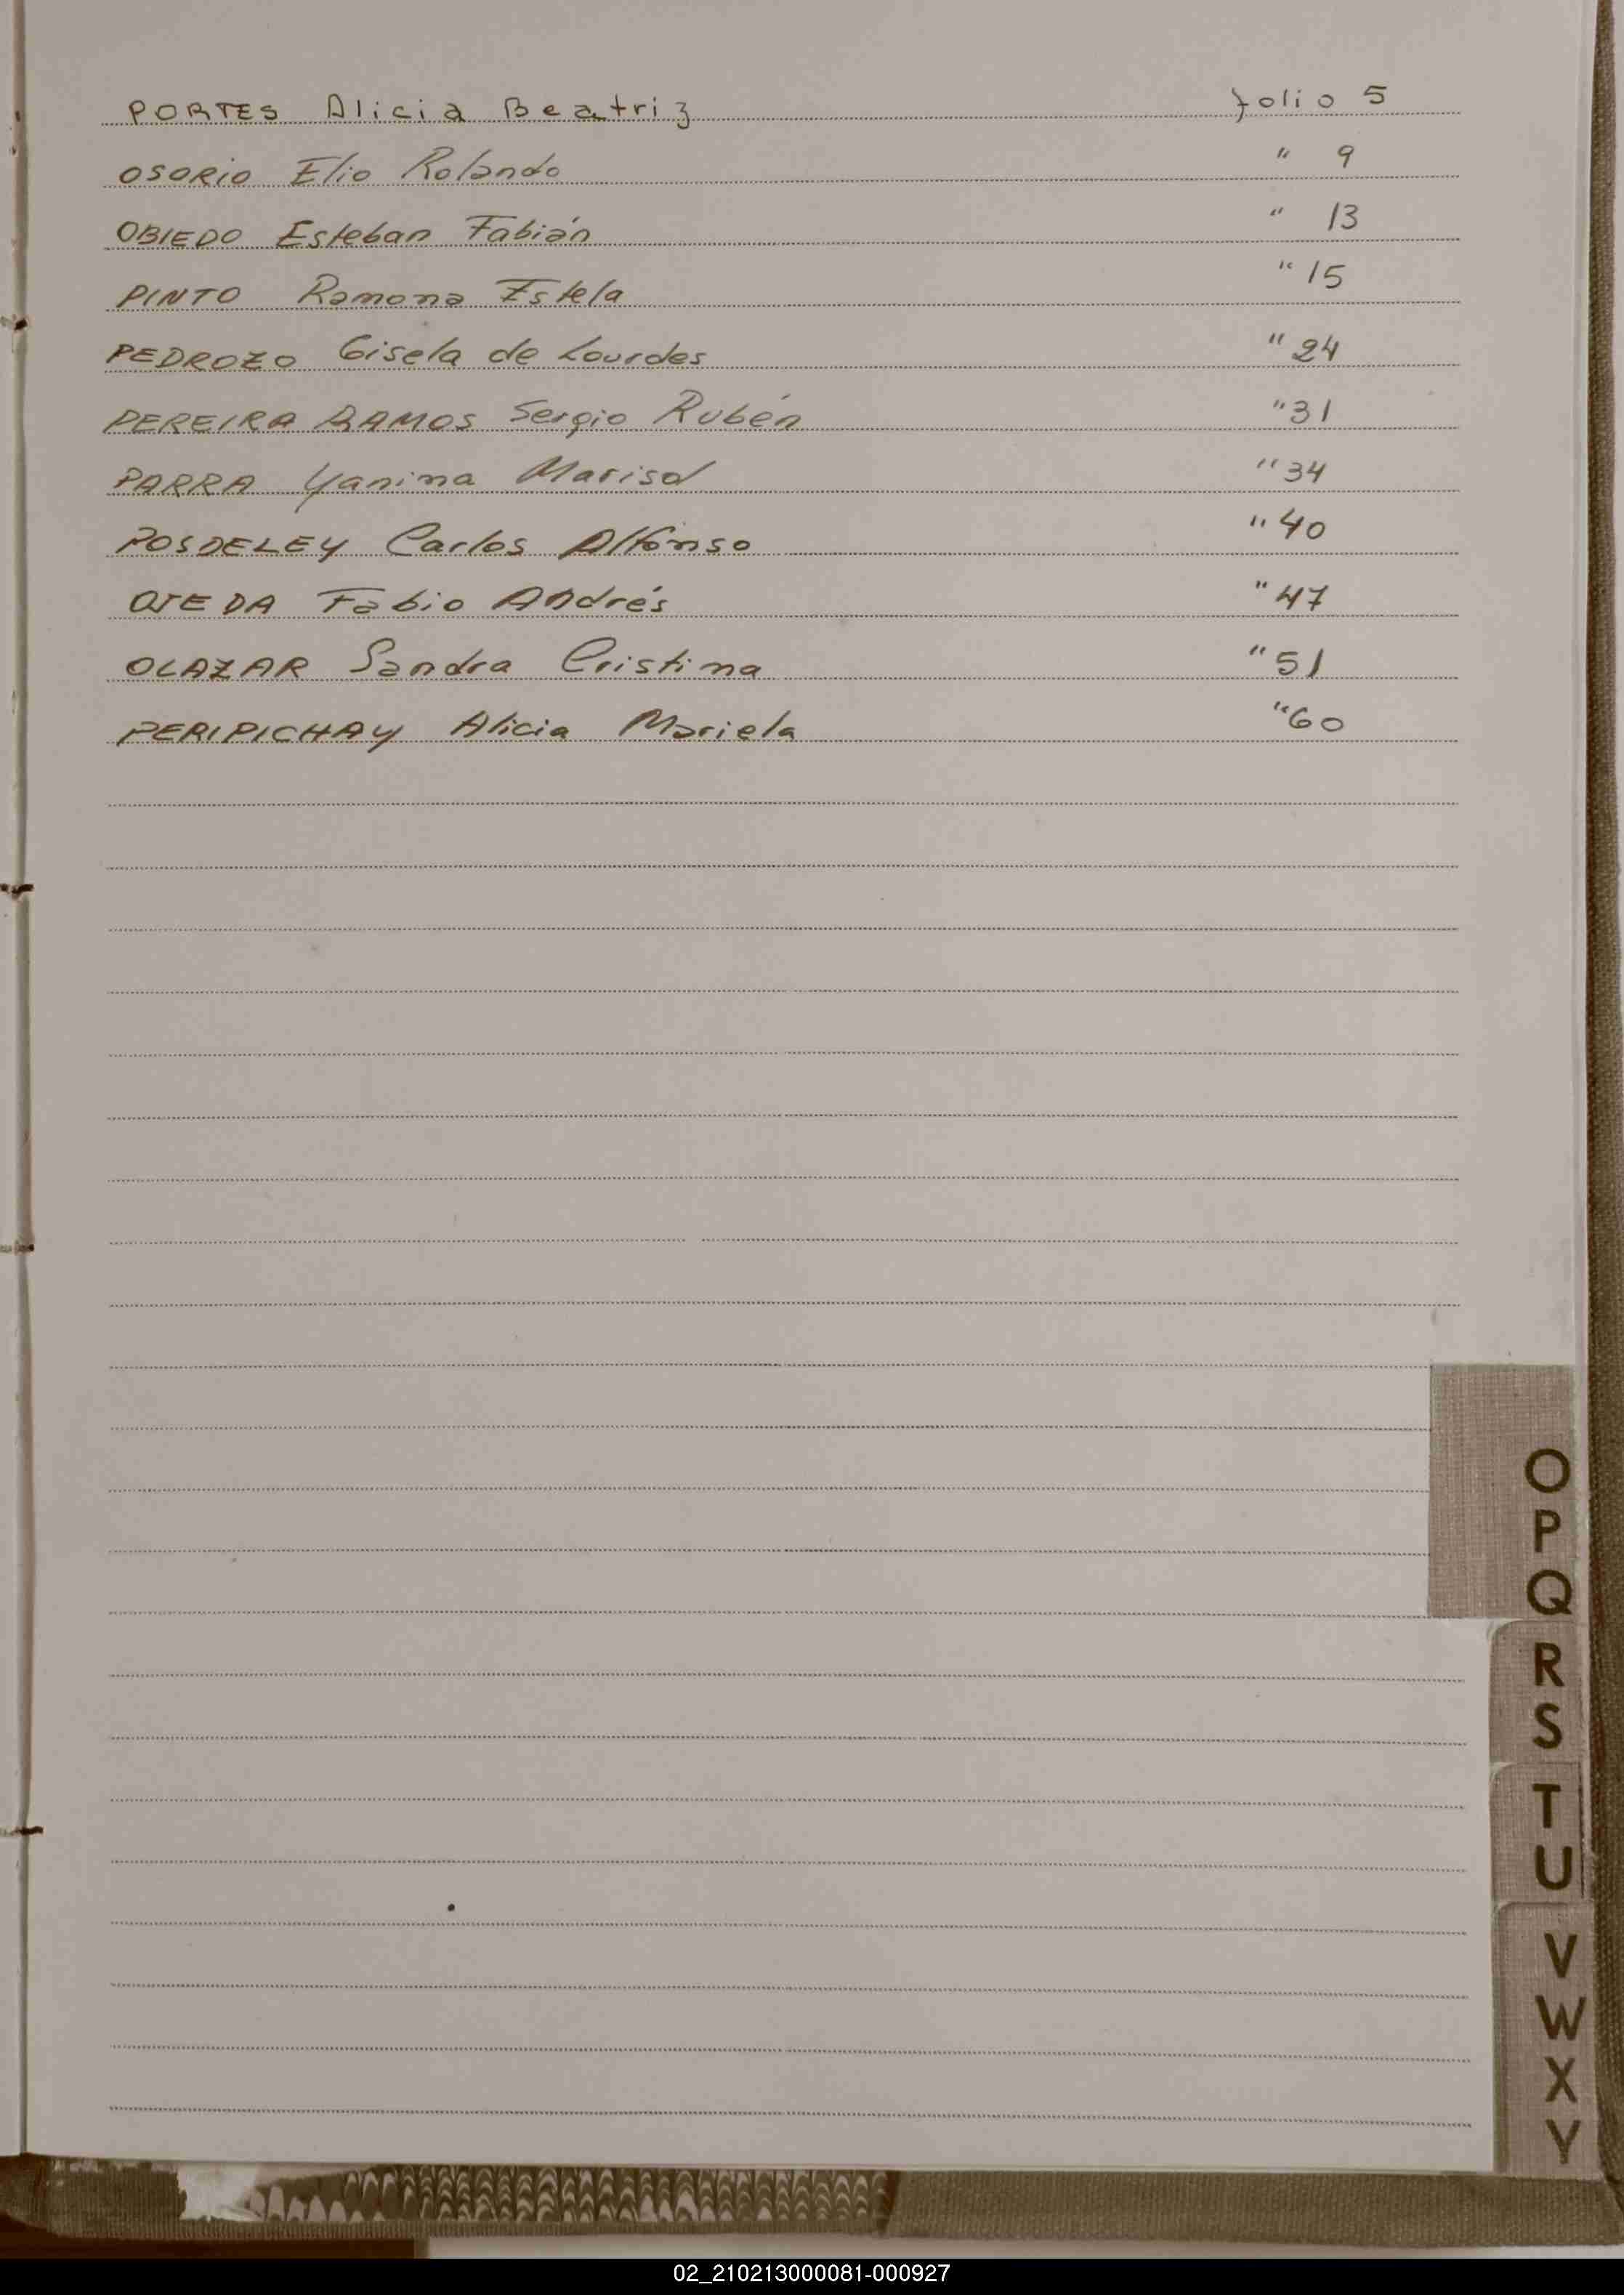 PORTES Alicia Beatriz folio 5
OSORIO Elio Rolando " 9
OBIEDO Esteban Fabián " 13
PINTO Ramona Estela " 15
PEDROZO Gisela de Lourdes " 24
PEREIRA RAMOS Sergio Rubén " 31
PARRA Yanina Marisol " 34
POSDELEY Carlos Alfonso " 40
OJEDA Fabio Andrés " 47
OLAZAR Sandra Cristina " 51
PERIPICHAY Alicia Mariela " 60
O
P
Q
R
S
T
U
V
W
X
Y
02_210213000081-000927